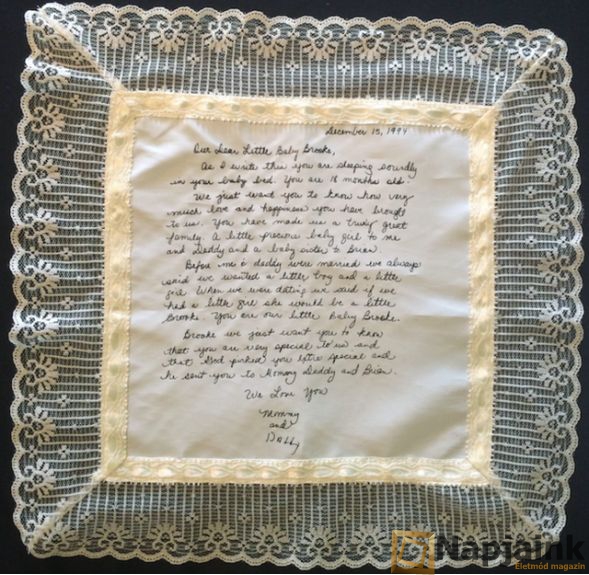 December 15, 1994
Our Dear Little Baby Brooke,
As I write this you are sleeping soundly
in your baby bed. You are 18 months old.
We just want you to know how very
much love and happiness you have brought
to us. You have made us a truly great
family. A little precious baby girl to me
and Daddy and a baby sister to Brian.
Before me & daddy were married we always
said we wanted a little boy and a little
girl. When we were dating we said if we
had a little girl she would be a little
Brooke. You are our little Baby Brooke.
Brooke we just want you to know
that you are very special to us and
that God picked you extra special and
he sent you to Mommy Daddy and Brian.
We Love You
Mommy
and
Daddy
Napjaink
Életmód magazin